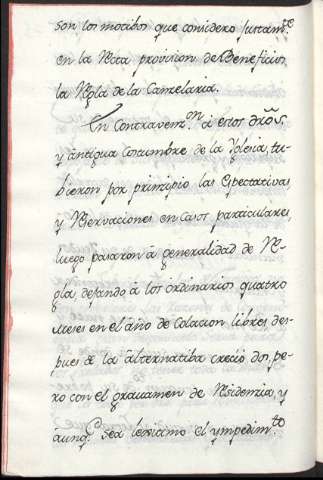 son los motibos que considero justam.te
en la Rota provision de Beneficios,
la Regla de la Canzelaria.
En Contravenz.n à estos dros,
y antigua Costumbre de la Yglesia, tu-
bieron por prinzipio las Espectativas
y Reservaciones en casos particulares,
luego pasaron à generalidad de Re-
gla, dejando à los ordinarios quatro
meses en el año de Colacion libre, des-
pues de la alternatiba crecio dos, pe-
ro con el gravamen de Residenzia, y
aunq.e sea lexisimo el ympedim.to